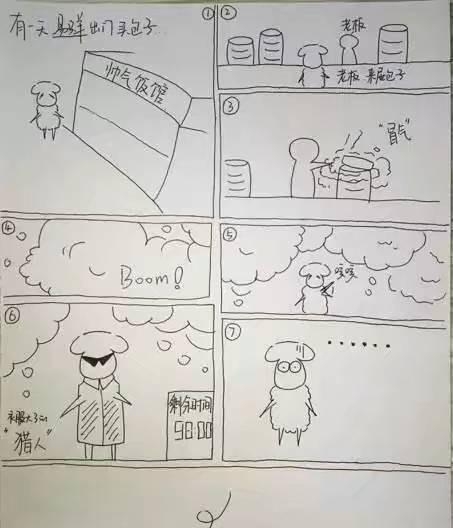 ①
有一天易烊出门买包子
帅气饭馆
②
老板
老板 来屉包子
③
"冒气"
④
Boom!
⑤
咳咳
⑥
衣服大了
"猎人"
剩余时间
98:00
⑦
······